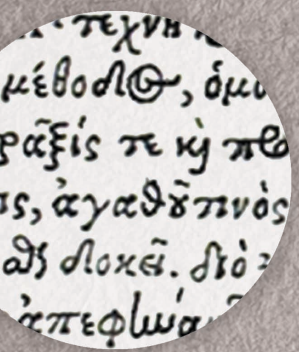 τέχνη
μέθοδος, ὁμο
ρᾶξίς τε καὶ προ
ις, ἀγαθοῦ τινὸς
δοκεῖ. διὸ
ἀπεφ